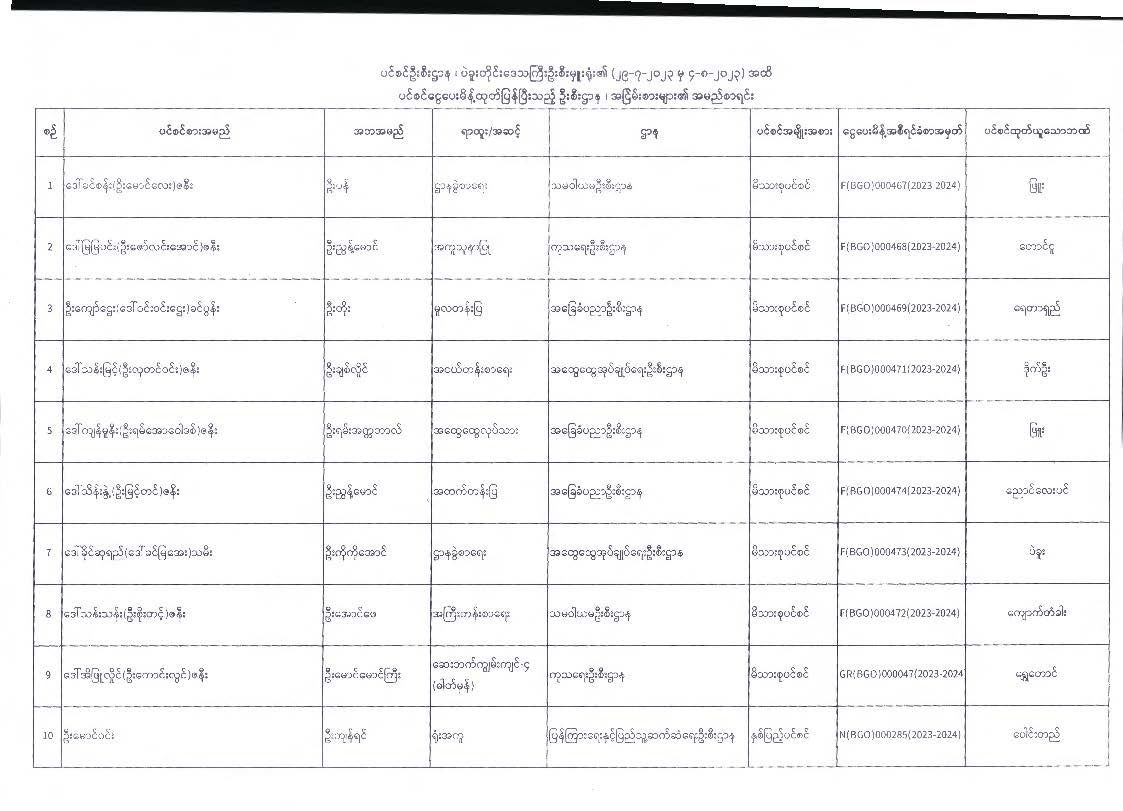 ပင်စင်ဦးစီးဌာန ၊ ပဲခူးတိုင်းဒေသကြီးဦးစီးမှူးရုံး၏ (၂၉-၇-၂၀၂၃ မှ ၄-၈-၂၀၂၃) အထိ
ပင်စင်ငွေပေးမိန့်ထုတ်ပြန်ပြီးသည့် ဦးစီးဌာန ၊ အငြိမ်းစားများ၏ အမည်စာရင်း
စဉ် ပင်စင်စားအမည် အဘအမည် ရာထူး/အဆင့် ဌာန ပင်စင်အမျိုးအစား ငွေပေးမိန့်အစီရင်ခံစာအမှတ် ပင်စင်ထုတ်ယူသောဘဏ်
1 ဒေါ်ခင်စန်း(ဦးမောင်လေး)ဇနီး ဦးပန် ဌာနခွဲစာရေး သမဝါယမဦးစီးဌာန မိသားစုပင်စင် F(BGO)000467(2023-2024) ဖြူး
2 ဒေါ်မြမြဝင်း(ဦးဇော်လင်းအောင်)ဇနီး ဦးညွန့်မောင် အကူသူနာပြု ကုသရေးဦးစီးဌာန မိသားစုပင်စင် F(BGO)000468(2023-2024) တောင်ငူ
3 ဦးကျော်ဌေး(ဒေါ်ဝင်းဝင်းဌေး)ခင်ပွန်း ဦးတိုး မူလတန်းပြ အခြေခံပညာဦးစီးဌာန မိသားစုပင်စင် F(BGO)000469(2023-2024) ရေတာရှည်
4 ဒေါ်သန်းမြင့်(ဦးလှတင်ဝင်း)ဇနီး ဦးချစ်လှိုင် အငယ်တန်းစာရေး အထွေထွေအုပ်ချုပ်ရေးဦးစီးဌာန မိသားစုပင်စင် F(BGO)000471(2023-2024) ဒိုက်ဦး
5 ဒေါ်ကျန်မူနီး(ဦးရမ်အောဝေါဒစ်)ဇနီး ဦးရမ်းအတ္တဘာလ် အထွေထွေလုပ်သား အခြေခံပညာဦးစီးဌာန မိသားစုပင်စင် F(BGO)000470(2023-2024) ဖြူး
6 ဒေါ်သိန်းနွဲ့(ဦးမြင့်တင်)ဇနီး ဦးညွန့်မောင် အထက်တန်းပြ အခြေခံပညာဦးစီးဌာန မိသားစုပင်စင် F(BGO)000474(2023-2024) ညောင်လေးပင်
7 ဒေါ်ခိုင်ဆုရည်(ဒေါ်ခင်မြအေး)သမီး ဦးကိုကိုအောင် ဌာနခွဲစာရေး အထွေထွေအုပ်ချုပ်ရေးဦးစီးဌာန မိသားစုပင်စင် F(BGO)000473(2023-2024) ပဲခူး
8 ဒေါ်သန်းသန်း(ဦးစိုးတင့်)ဇနီး ဦးအောင်ဖေ အကြီးတန်းစာရေး သမဝါယမဦးစီးဌာန မိသားစုပင်စင် F(BGO)000472(2023-2024) ကျောက်တံခါး
9 ဒေါ်အိဖြူလှိုင်(ဦးကောင်းလွင်)ဇနီး ဦးမောင်မောင်ကြီး ဆေးဘက်ကျွမ်းကျင်-၄ ကုသရေးဦးစီးဌာန မိသားစုပင်စင် GR(BGO)000047(2023-2024 ရွှေတောင်
(ဓါတ်မှန်)
10 ဦးမောင်ဝင်း ဦးကျန်ရင် ရုံးအကူ ပြန်ကြားရေးနှင့်ပြည်သူ့ဆက်ဆံရေးဦးစီးဌာန နှစ်ပြည့်ပင်စင် N(BGO)000285(2023-2024) ပေါင်းတည်